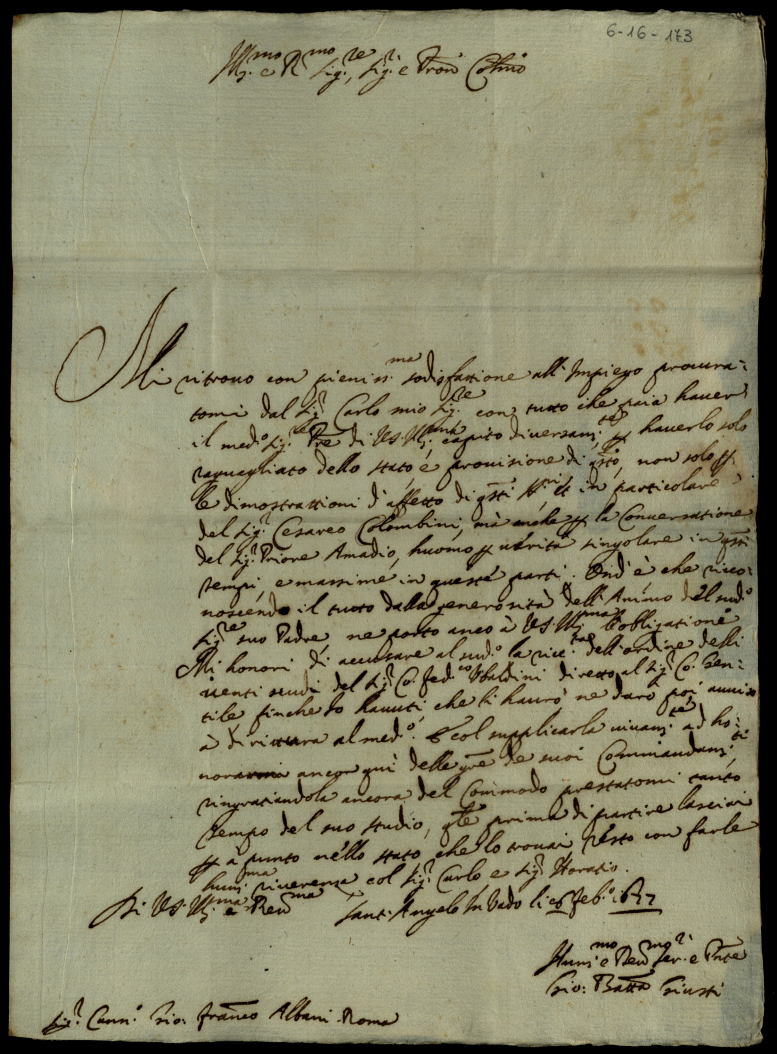 6-16-173
Ill.mo e R.mo Sig.re, Sig.r e Pron Col.mo
Mi ritrouo con pieniss.ma sodisfattione all'Impiego procura=
tomi dal Sig.r Carlo mio Sig.re con tutto che paia hauer
il med.o Sig.re Pre di VS Ill. capito diuersam.te p hauerlo solo
raguagliato dello stato, e prouisione di qsto, non solo p
le dimostrationi d'affetto di qsti in particolare
del Sig.r Cesareo Colombini, mà anche p la Conuersatione
del Sig.r Priore Amadio, huomo p uerità singolare in qsti
tempi, e massime in queste parti. Ond'è che rico=
noscendo il tutto dalla generosità dell'Animo del sud.o
Sig.re suo Padre, ne porto anco à VS Ill.ma l'obligatione
Mi honori di accusare al sud.o la rice.ta dell'ordine delli
uenti scudi del Sig.r Co: Fed.co Vbaldini diretto al Sig.r Co: Gen=
tile finche lo hauuti, che li haurò, ne darò poi auuiso
à dirittura al med.o. E col supplicarla uiuam.te ad ho=
norarmi ancor quì delle gre de suoi Commandam.ti
ringratiandola ancora del Commodo prestatomi tanto
tempo del suo studio, qle prima di partire lasciai
p à punto nello stato che lo trouai resto con farle
humi.ma riuerenza col Sig.r Carlo e Sig.r Horatio.
Di VS. Ill.ma e Reu.ma Sant'Angelo In Vado li 6 Feb.o 1677
Hum.mo e Reu.mo Ser.e e Pnte
Gio: Batta Giusti
Sig.r Cann.o Gio: Franco Albani Roma